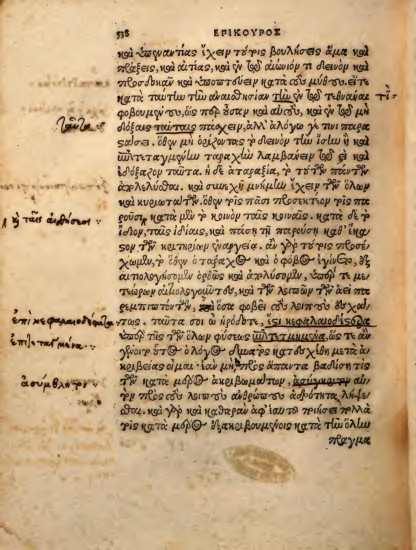 538 ΕΠΙΚΟΥΡΟΣ
καὶ ὑπεναντίας ἔχειν τούτοις βουλήσεις ἅμα καὶ
πράξεις, καὶ αἰτίας, καὶ ἐν τῷ αἰώνιόν τι δεινὸν καὶ
προσδοκᾶν καὶ ὑποπτεύειν κατὰ τοὺς μύθους. εἴτε
κατὰ ταύτην τὴν ἀναισθησίαν τὴν ἐν τῷ τεθνάναι
φοβουμένους, ὥσπερ οὖσαν καὶ αὐτούς, καὶ ἐν τῷ μὴ
δόξαις ταύταις πάσχειν, ἀλλ' ἀλόγῳ γέ τινι παρα
στάσει. ὅθεν μὴ ὁρίζοντας τὸ δεινὸν τὴν ἴσην ἢ καὶ
ταραχὴν λαμβάνειν τῷ εἰ καὶ
ἐδόξαζον ταῦτα. ἡ δὲ ἀταραξία, τὸ τούτων πάντων
ἀπολελύσθαι. καὶ συνεχῆ μνήμην ἔχειν τῶν ὅλων
καὶ κυριωτάτων. ὅθεν τοῖς πᾶσι προσεκτέον τοῖς πα
ροῦσι, κατὰ μὲν τὸ κοινὸν ταῖς κοιναῖς. κατὰ δὲ τὸ
ἴδιον, ταῖς ἰδίαις, καὶ πάσῃ τῇ παρούσῃ καθ' ἕκα
στον τῶν κριτηρίων ἐναργείᾳ. ἂν γὰρ τούτοις προσέ
χωμεν, τὸ ὅθεν ὁ τάραχος καὶ ὁ φόβος ἐγίνετο, ἐξ
αιτιολογήσομεν ὀρθῶς καὶ ἀπολύσομεν, ὑπέρ τε με
τεώρων αἰτιολογοῦντες, καὶ τῶν λοιπῶν τῶν ἀεὶ πα
ρεμπιπτόντων, καὶ ὅσα φοβεῖ τοὺς λοιποὺς ἐσχά
τως. ταῦτά σοι ὦ ἡρόδοτε, ἐστὶ κεφαλαιωδέστατα
ὑπὲρ τῆς τῶν ὅλων φύσεως ἐπιτετμημένα, ὥστε ἂν
γένοιτο οὗτος ὁ λόγος δυνατὸς κατασχεθῆ μετὰ ἀ
κριβείας οἶμαι. ἐὰν μὴ πρὸς ἅπαντα βαδίσῃ τις
τῶν κατὰ μέρος ἀκριβωμάτων, ἀσύγκριτον αὐ
τὸν πρὸς τοὺς λοιποὺς ἀνθρώπους ἁδρότητα λήψε
σθαι. καὶ γὰρ καὶ καθαρὰν ἀφ' ἑαυτοῦ ποιήσει πολλὰ
τοῖς κατὰ μέρος ἐξακριβουμένοις κατὰ τὴν ὅλην
πραγμα
ταῦτα
ἀσύμβλητον